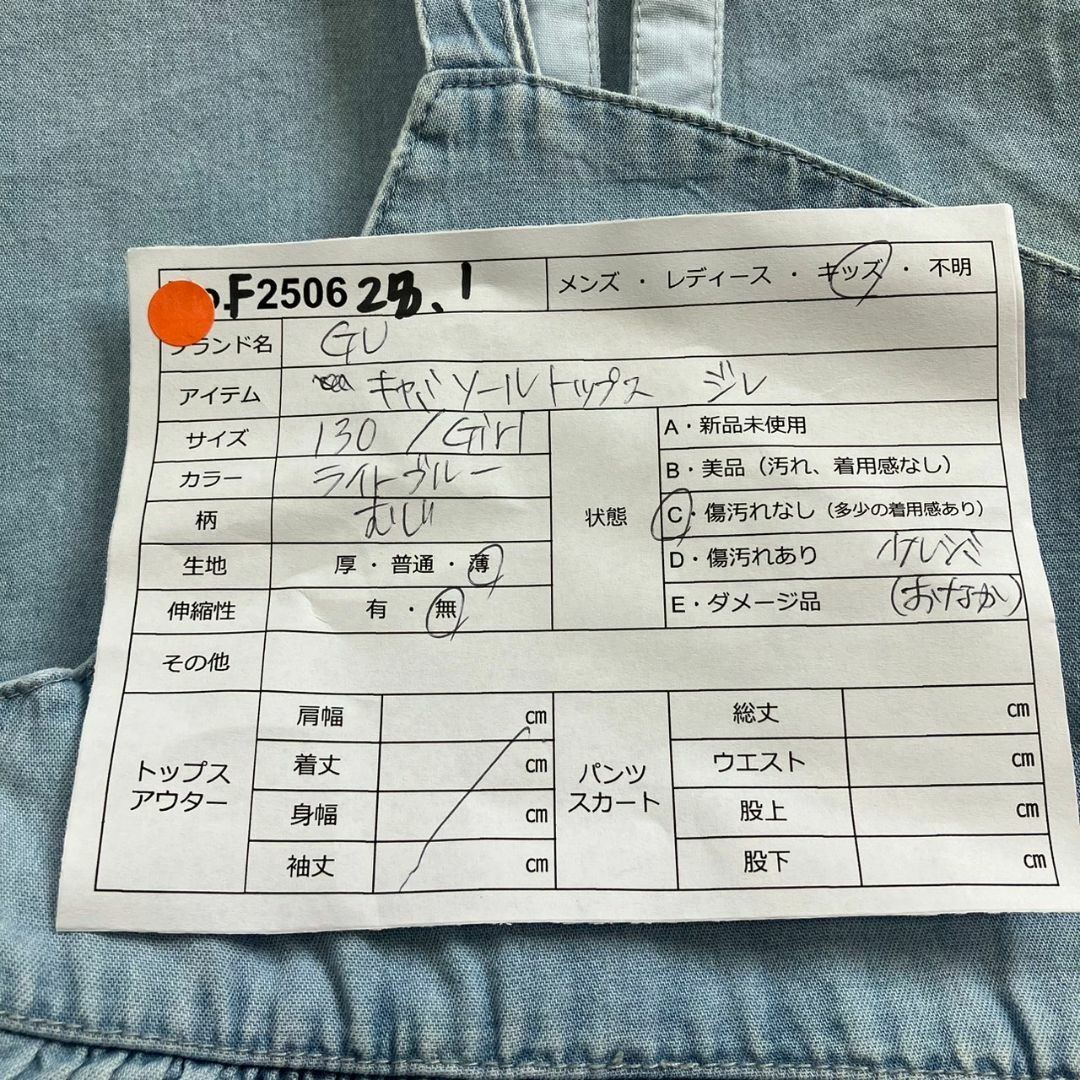 o.F2506 28.1
メンズ ・ レディース ・ キッズ ・ 不明
ブランド名 GU
アイテム キャミソールトップス ジレ
サイズ 130 / Girl
カラー ライトブルー
柄 むじ
生地 厚 ・ 普通 ・ 薄
伸縮性 有 ・ 無
状態
A・新品未使用
B・美品（汚れ、着用感なし）
C・傷汚れなし（多少の着用感あり）
D・傷汚れあり
E・ダメージ品 (おなか)
その他
トップス
アウター
肩幅 cm
着丈 cm
身幅 cm
袖丈 cm
パンツ
スカート
総丈 cm
ウエスト cm
股上 cm
股下 cm